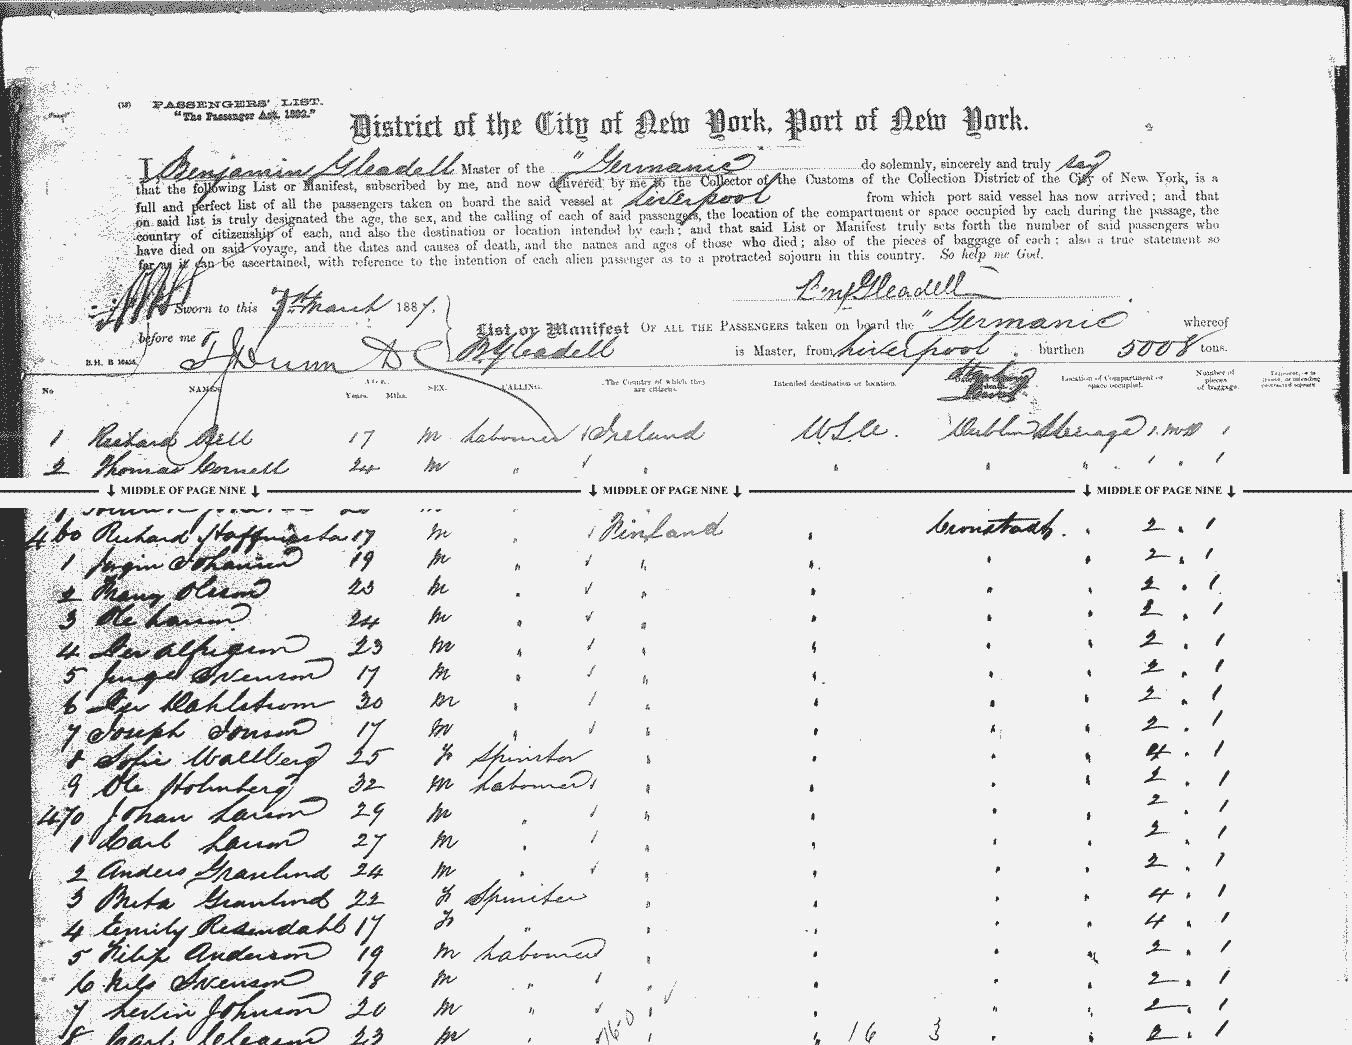 (18) PASSENGERS' LIST.
"The Passenger Act, 1882."
District of the City of New York, Port of New York.
I, Benjamin Gleadell Master of the "Germanic do solemnly, sincerely and truly say
that the following List or Manifest, subscribed by me, and now delivered by me to the Collector of the Customs of the Collection District of the City of New York, is a
full and perfect list of all the passengers taken on board the said vessel at Liverpool from which port said vessel has now arrived; and that
on said list is truly designated the age, the sex, and the calling of each of said passengers, the location of the compartment or space occupied by each during the passage, the
country of citizenship of each, and also the destination or location intended by each; and that said List or Manifest truly sets forth the number of said passengers who
have died on said voyage, and the dates and causes of death, and the names and ages of those who died; also of the pieces of baggage of each; also a true statement so
far as it can be ascertained, with reference to the intention of each alien passenger as to a protracted sojourn in this country. So help me God.
Benj Gleadell
Sworn to this 7th March 1887.
before me
List or Manifest OF ALL THE PASSENGERS taken on board the "Germanic whereof
B Gleadell is Master, from Liverpool . burthen 5008 tons.
No NAMES. AGE. Years. Mths. SEX. CALLING. The Country of which they are citizens. Intended destination or location. Location of Compartment or space occupied. Number of pieces of baggage.
1 Richard Bell 17 M Labourer Ireland U.S.A. Dublin Steerage 1 1
2 Thomas Cornell 24 M " " " " " 1 " 1
MIDDLE OF PAGE NINE MIDDLE OF PAGE NINE MIDDLE OF PAGE NINE
460 Richard 17 M " Finland " Cronstadt. " 2 . 1
1 Johansen 19 M " " " " " 2 . 1
2 Olsson 23 M " " " " " 2 . 1
3 Ole Larson 24 M " " " " " 2 . 1
4 23 M " " " " " 2 . 1
5 Svenson 17 M " " " " " 2 . 1
6 Per Dahlstrom 30 M " " " " " 2 . 1
7 Joseph Jonson 17 M " " " " " 2 . 1
8 Sofie Wallberg 25 F Spinster " " " " 4 . 1
9 Ole Holmberg 32 M Labourer " " " " 2 . 1
470 Johan Larson 29 M " " " " " 2 1
1 Carl Larson 27 M " " " " " 2 . 1
2 Anders Granlund 24 M " " " " " 2 . 1
3 Brita Granlund 22 F Spinster " " " " 4 . 1
4 Emily Rosendahl 17 F " " " " " 4 . 1
5 Filip Anderson 19 M Labourer " " " " 2 . 1
6 Nils Svenson 18 M " " " " " 2 . 1
7 Levin Johnson 20 M " " " " " 2 . 1
8 Carl 23 M " " 16 3 " " 2 . 1